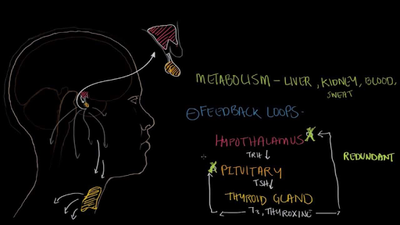 METABOLISM - LIVER, KIDNEY, BLOOD,
SWEAT
⊖FEEDBACK LOOPS.
HYPOTHALAMUS
TRH↓
REDUNDANT
PITUITARY
TSH↓
THYROID GLAND
T3, THYROXINE